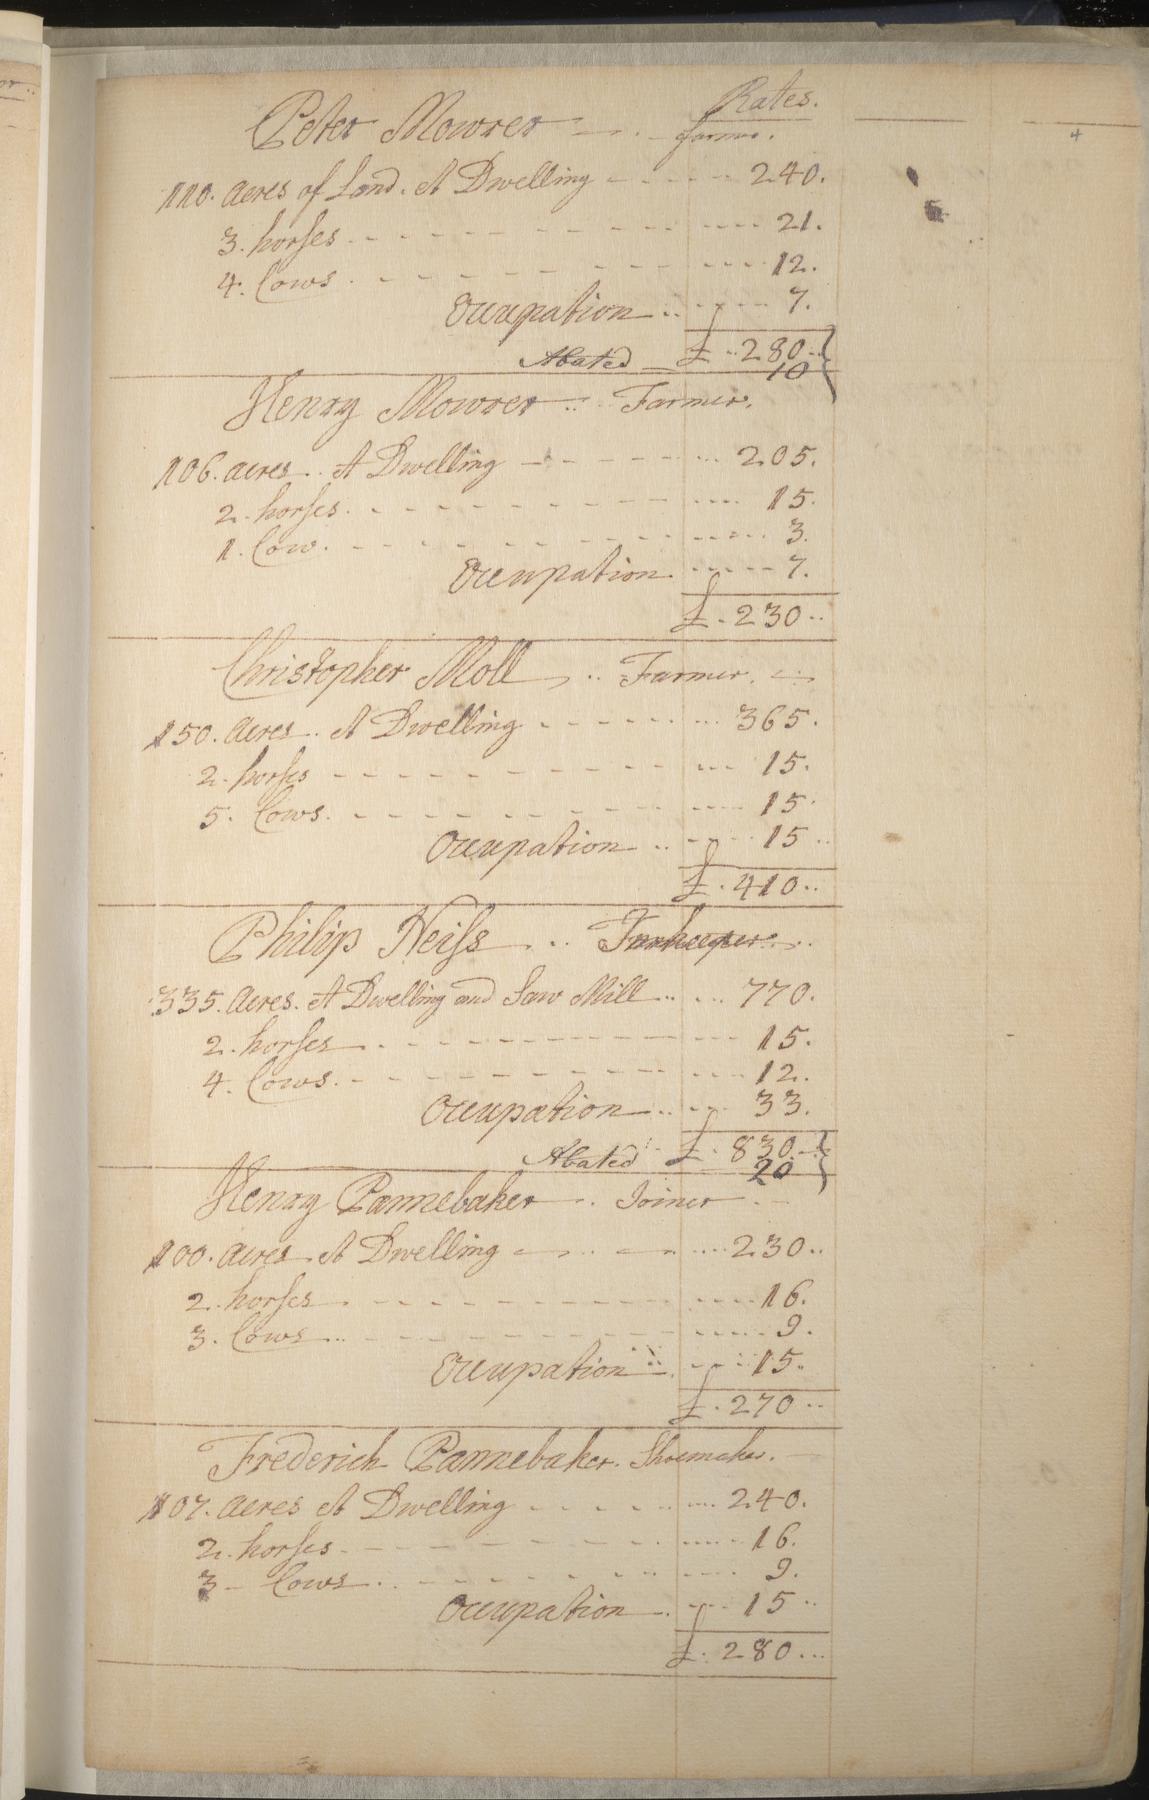 Rates.
Peter Mowrer farmer.
110. Acres of Land. A Dwelling 240.
3. horses 21.
4. Cows 12.
Occupation 7.
Abated £ 280
10
Henry Mowrer Farmer.
106. acres A Dwelling 205.
2. horses. 15.
1. Cow. 3.
Occupation. 7.
£. 230
Christopher Moll Farmer.
150. Acres A Dwelling 365.
2. horses 15.
5. Cows. 15.
Occupation 15
£. 410
Philip Neiss Innkeeper
335. Acres. A Dwelling and Saw Mill 770.
2. horses 15.
4. Cows. 12.
Occupation 33.
Abated £. 830.
20
Henry Pannebaker Joiner
100. Acres A Dwelling 230
2. horses 16.
3. Cows 9.
Occupation 15.
£. 270
Frederich Pannebaker. Shoemaker.
107. Acres A Dwelling 240.
2. horses 16.
3 Cows 9.
Occupation 15
£. 280
4